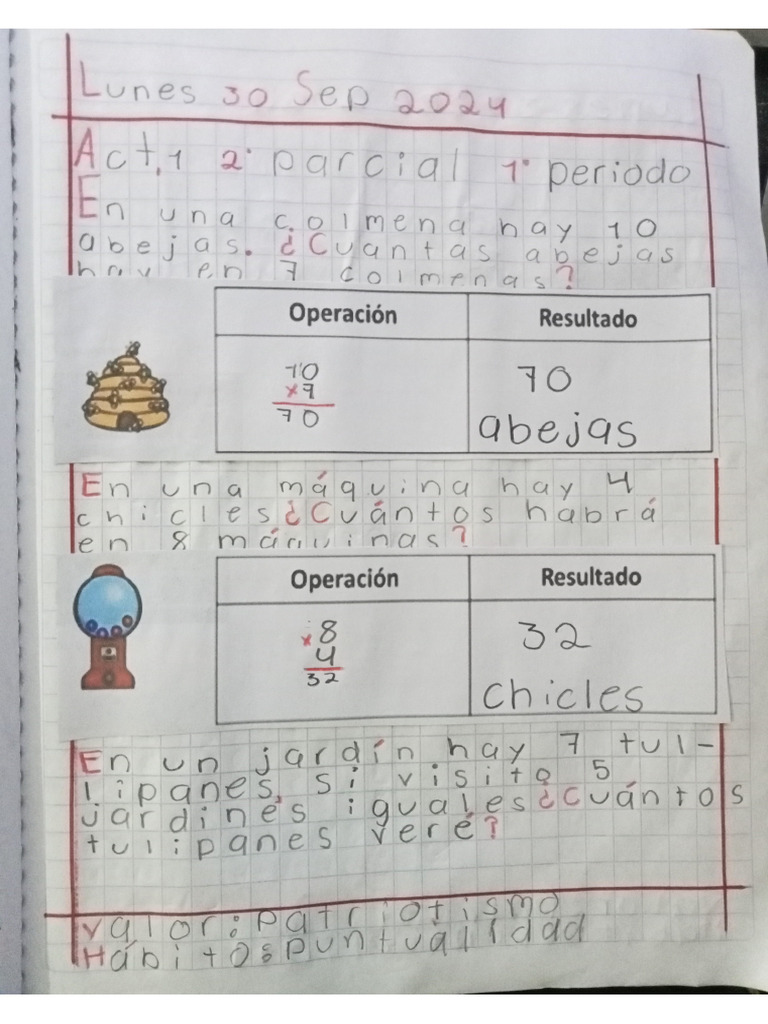 Lunes 30 Sep 2024
Act. 1 2° parcial 1° periodo
En una colmena hay 10
abejas. ¿Cuantas abejas
hay en 7 colmenas?
Operación Resultado
10
×7
70
70
abejas
En una máquina hay 4
chicles ¿Cuántos habrá
en 8 máquinas?
Operación Resultado
×8
4
32
32
chicles
En un jardín hay 7 tul-
lipanes, si visito 5
jardines iguales ¿Cuántos
tulipanes veré?
Valor: patriotismo
Hábito: puntualidad